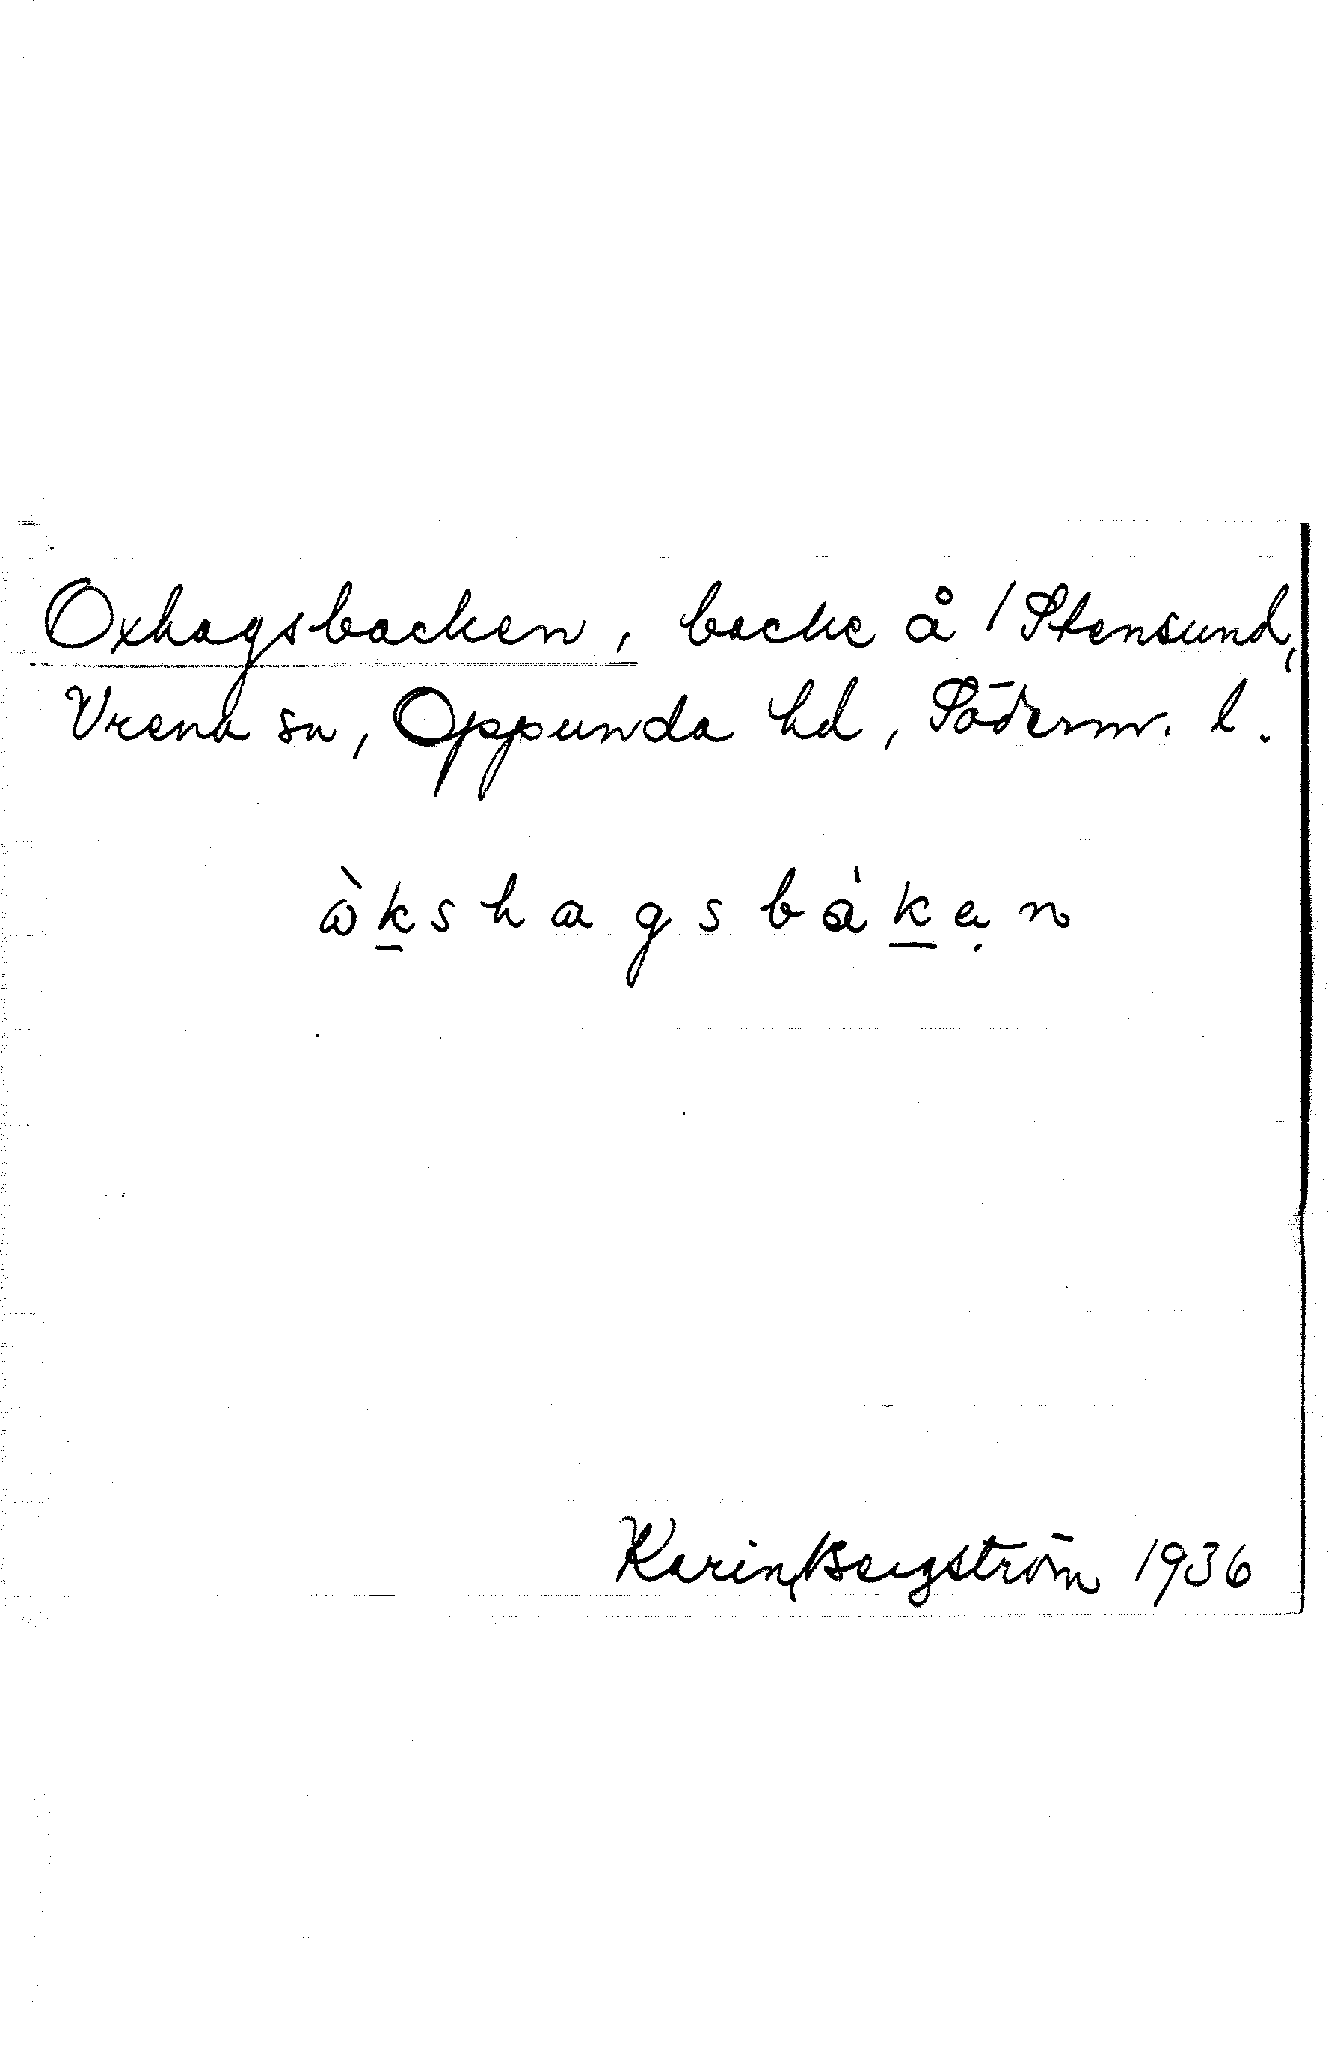 Oxhagsbacken, backe å 1 Stensund,
Vrena sn, Oppunda hd, Söderm. l.
ò̀k̲shagsbàk̲ạn
Karin Bergström 1936